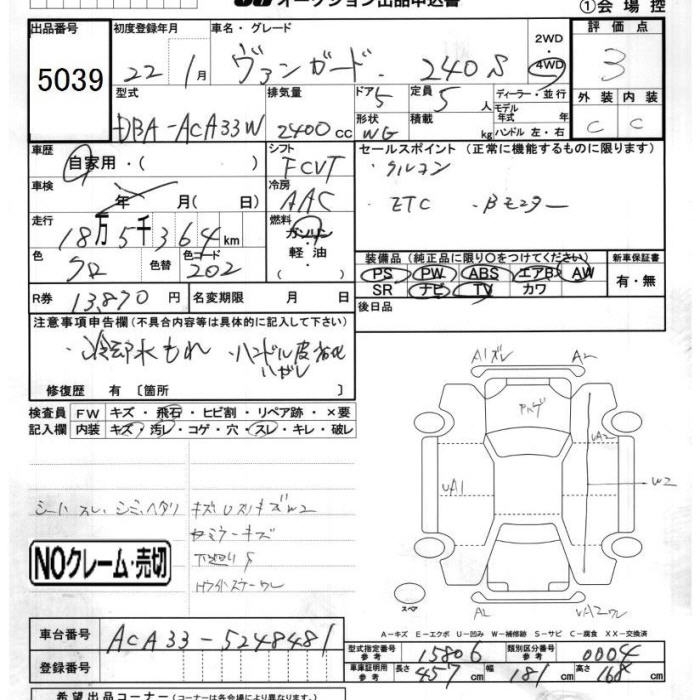 オークション出品申込書
①会場控
出品番号 初度登録年月 車名・グレード 評価点
5039 22年1月 ヴァンガード・240S 2WD 4WD 3
型式 排気量 ドア 定員 ディーラー・並行 外装 内装
DBA-ACA33W 2400cc 5 5人 モデル年式 年 C C
形状 WG 積載 kg ハンドル 左・右
車歴 自家用・( ) シフト FCVT セールスポイント (正常に機能するものに限ります)
車検 年 月( 日) 冷房 AAC
・ETC ・Bモニター
走行 18万5千364km 燃料 ガソリン・軽油・
色 クロ 色替 色コード 202
装備品 (純正品に限り○をつけてください) 新車保証書
PS PW ABS エアB AW 有・無
SR ナビ TV カワ
R券 13,870円 名変期限 月 日 後日品
注意事項申告欄 (不具合内容等は具体的に記入して下さい)
・冷却水もれ ・ハンドル皮
修復歴 有 [箇所 ]
検査員 FW キズ・飛石・ヒビ割・リペア跡・×要
記入欄 内装 キズ・汚レ・コゲ・穴・スレ・キレ・破レ
A1ズレ A2
UA2
UA1 W2
シート スレ、シミ、ヘタリ キズUスリキズW2
下廻りS
NOクレーム・売切
スペア A2 UA2ワレ
A-キズ E-エクボ U-凹み W-補修跡 S-サビ C-腐食 XX-交換済
車台番号 ACA33-5248481
型式指定番号 参考 15806 類別区分番号 参考 0004
登録番号 車庫証明用 参考 長さ 457cm 幅 181cm 高さ 168cm
希望出品コーナー (コーナーは各会場により異なります)